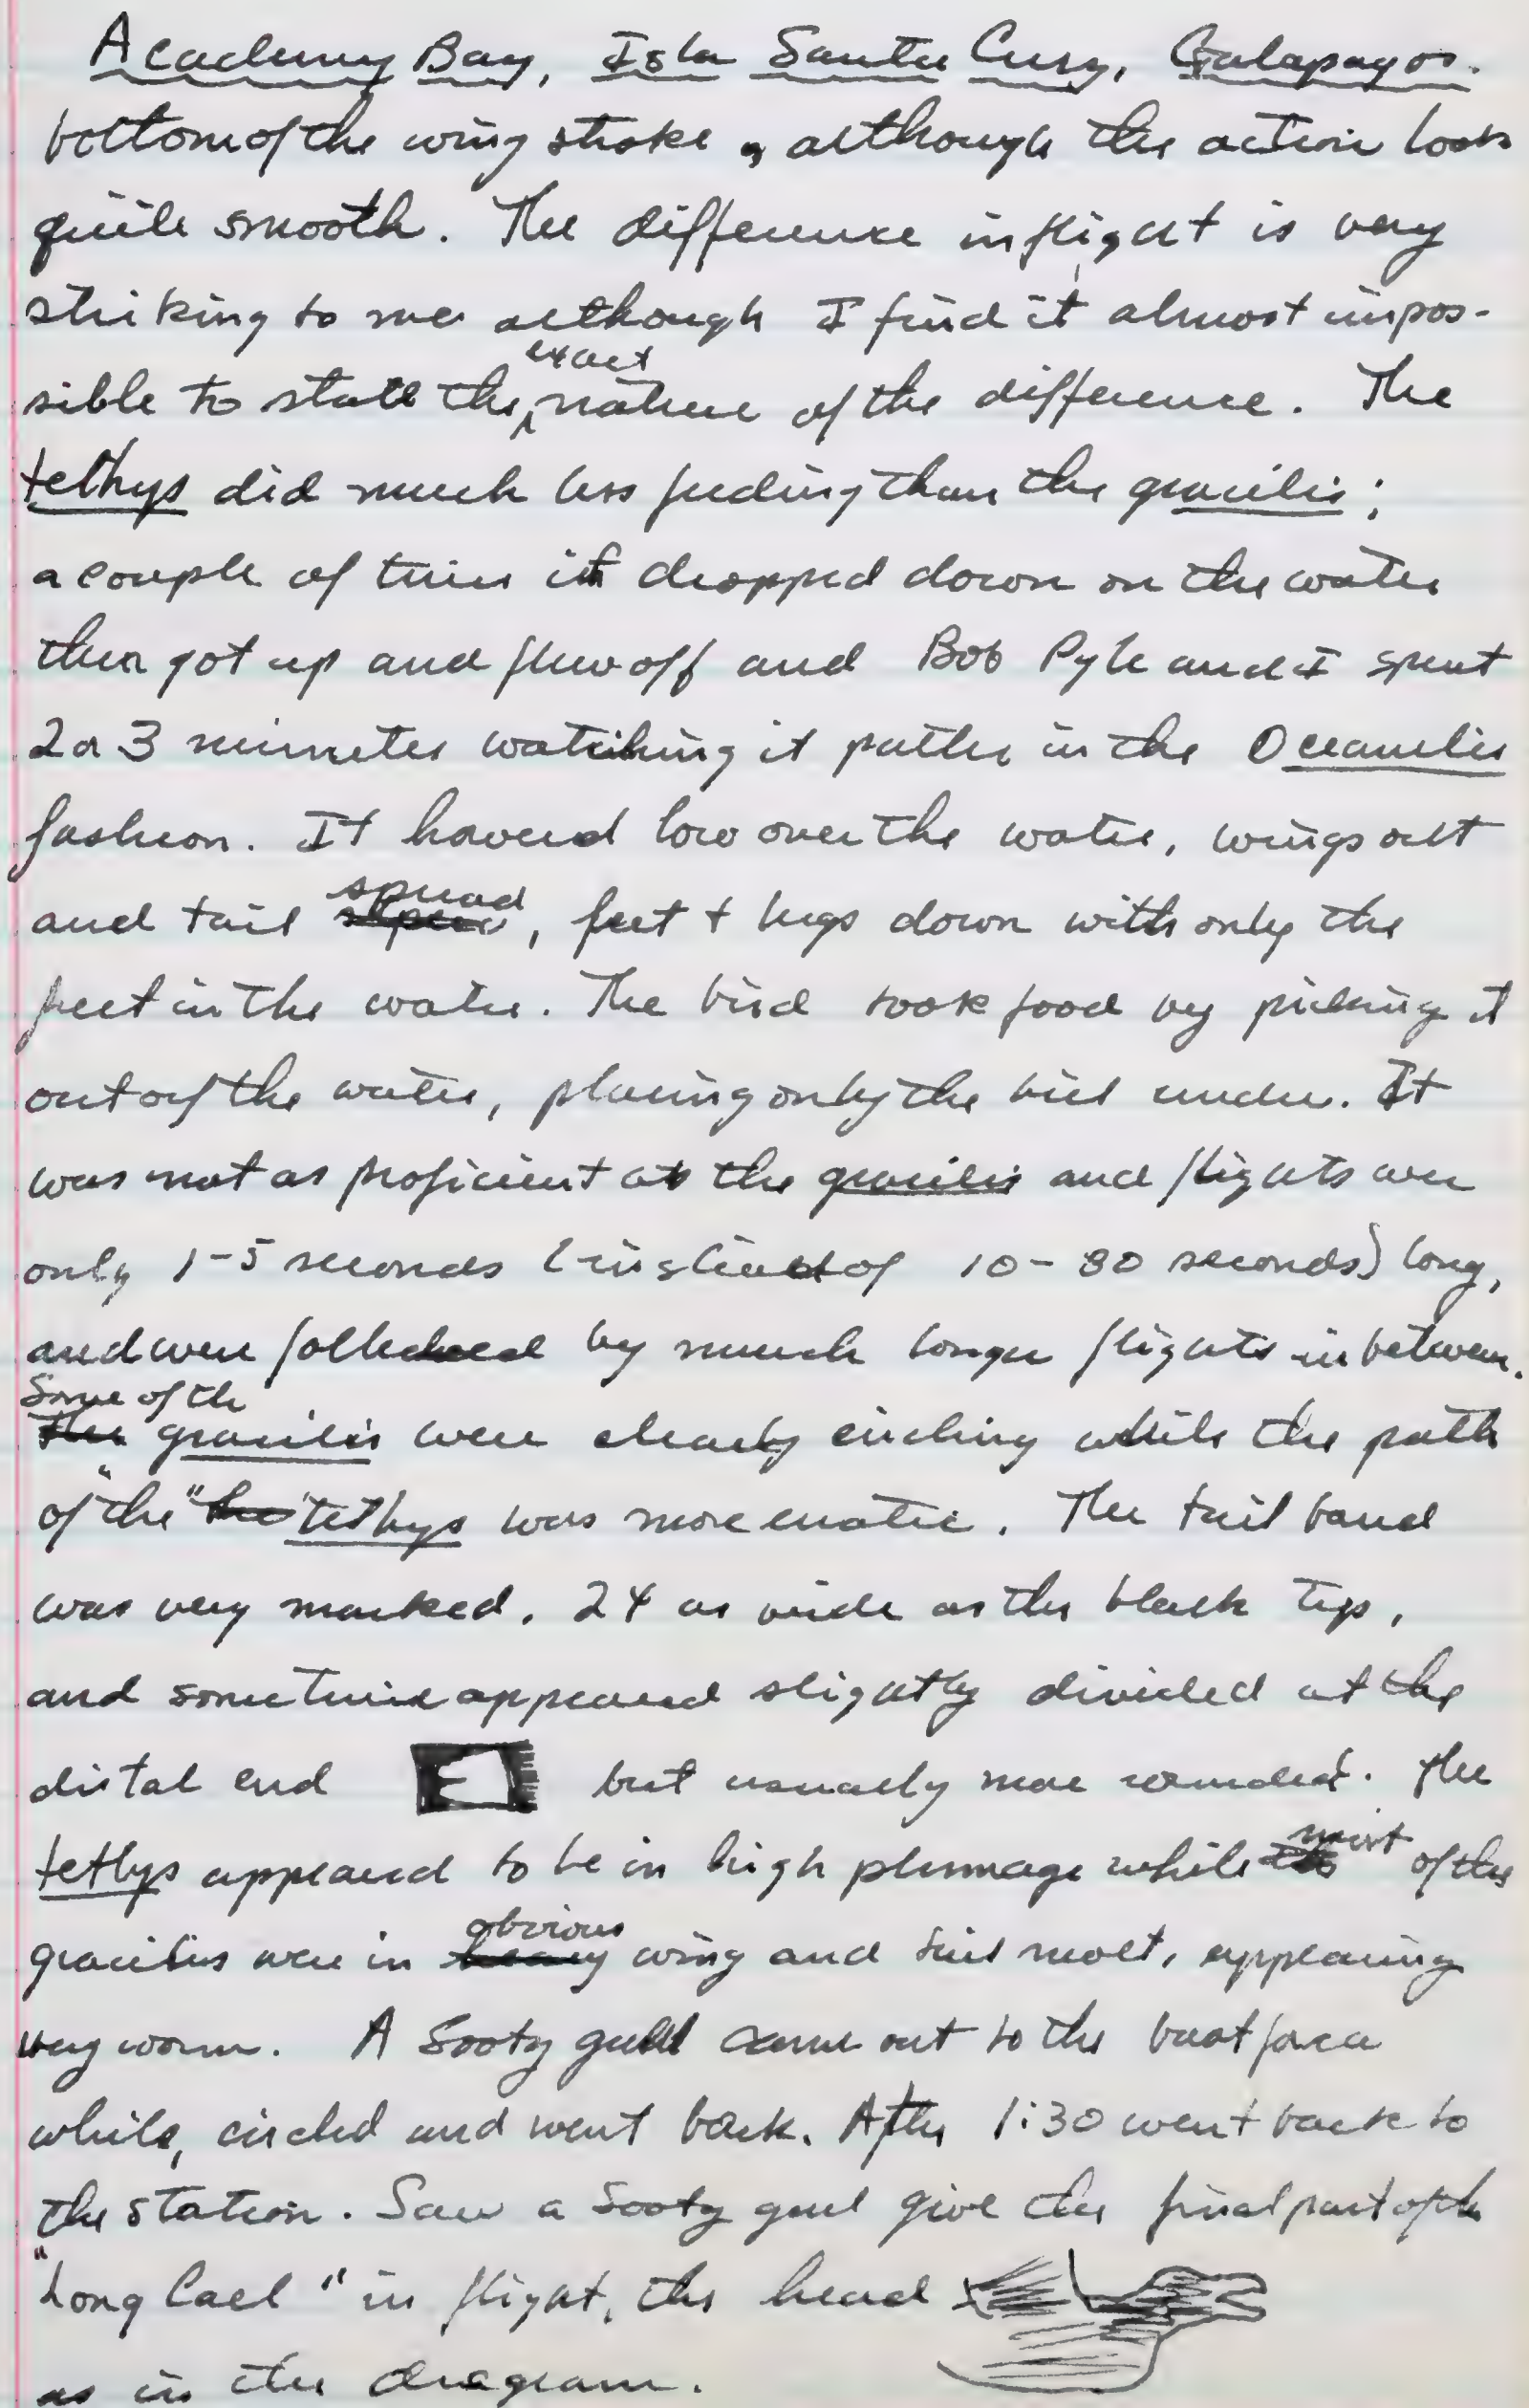 Academy Bay, Isla Santa Cruz, Galapagos.
bottom of the wing stroke, although the action looks
quite smooth. The difference in flight is very
striking to me although I find it almost impos-
sible to state the exact nature of the difference. The
tethys did much less feeding than the gracilis;
a couple of times it dropped down on the water
then got up and flew off and Bob Pyle and I spent
2 or 3 minutes watching it patter in the Oceanites
fashion. It hovered low over the water, wings out
and tail spread, feet + legs down with only the
feet in the water. The bird took food by picking it
out of the water, placing only the bill under. It
was not as proficient as the gracilis and flights were
only 1-5 seconds (instead of 10-30 seconds) long,
and were followed by much longer flights in between.
Some of the gracilis were clearly circling while the path
of "the" tethys was more erratic. The tail band
was very marked. 2X as wide as the black tip,
and sometimes appeared slightly divided at the
distal end but usually more rounded. The
tethys appeared to be in high plumage while most of the
gracilis were in obvious wing and tail molt, appearing
very worn. A Sooty gull came out to the boat for a
while, circled and went back. After 1:30 went back to
the station. Saw a Sooty gull give the final part of the
"Long Call" in flight, the head
as in the diagram.